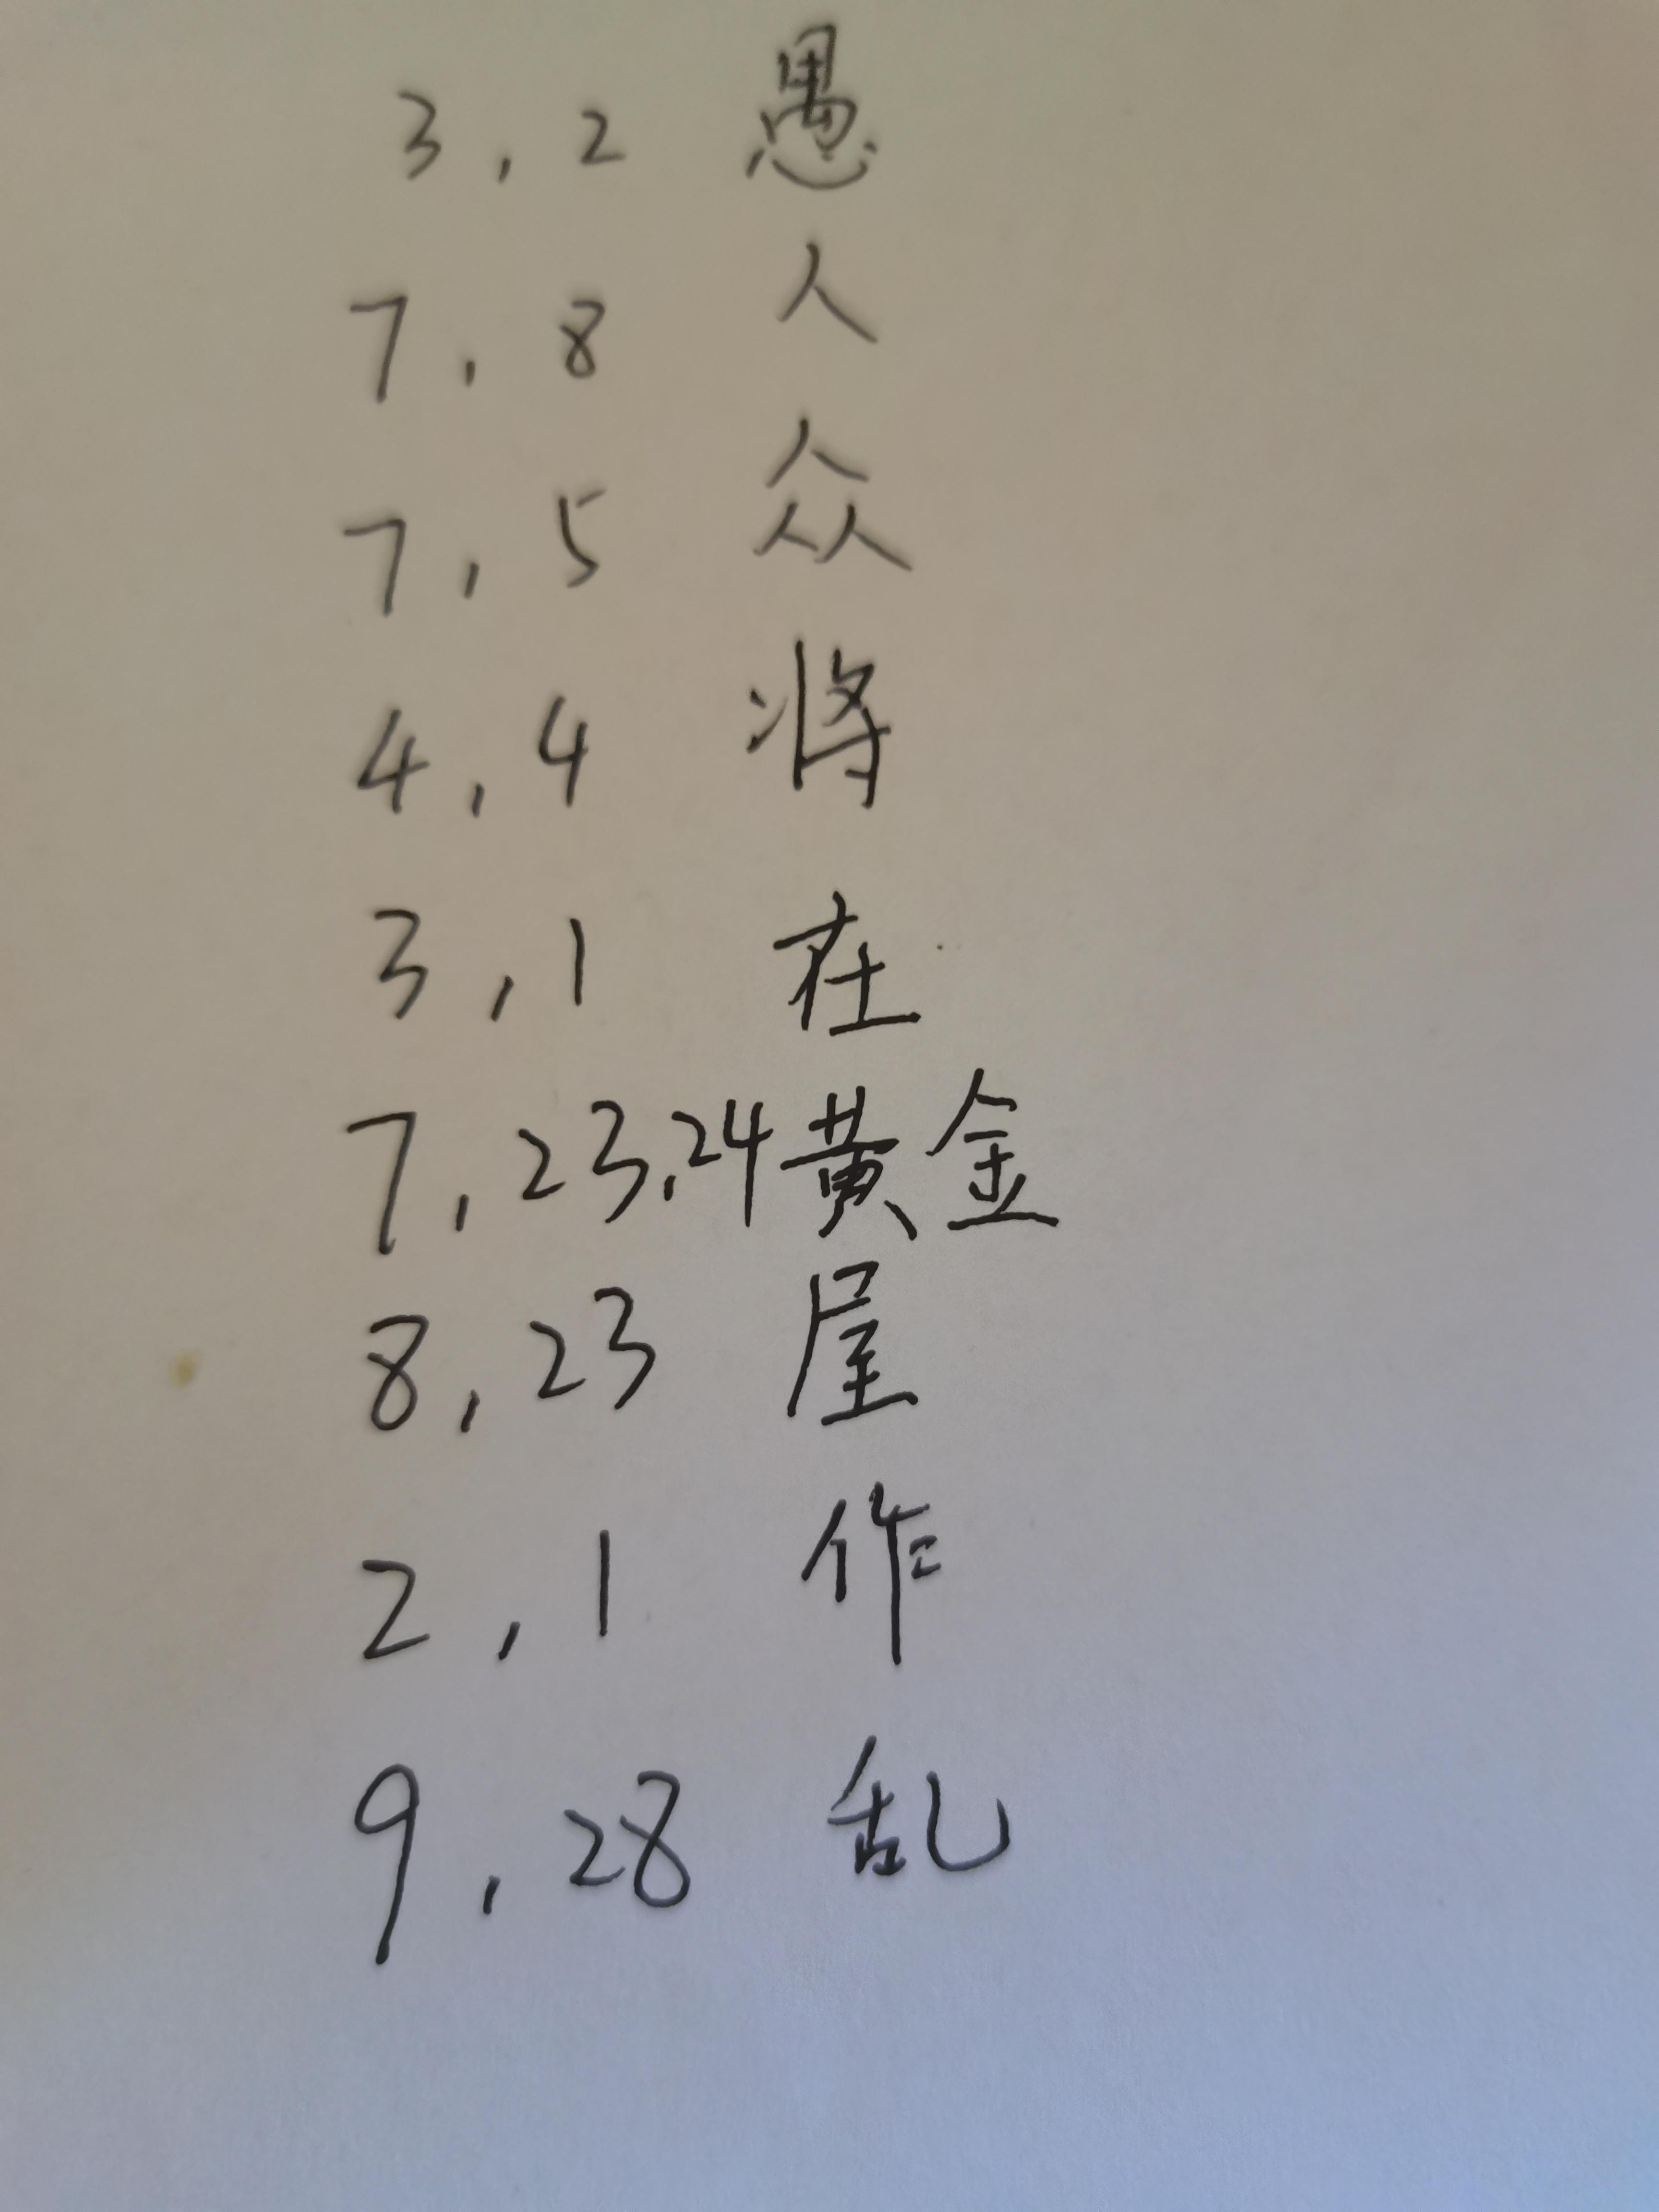 3,2 愚
7,8 人
7,5 众
4,4 将
3,1 在
7,23,24 黄金
8,23 屋
2,1 作
9,28 乱